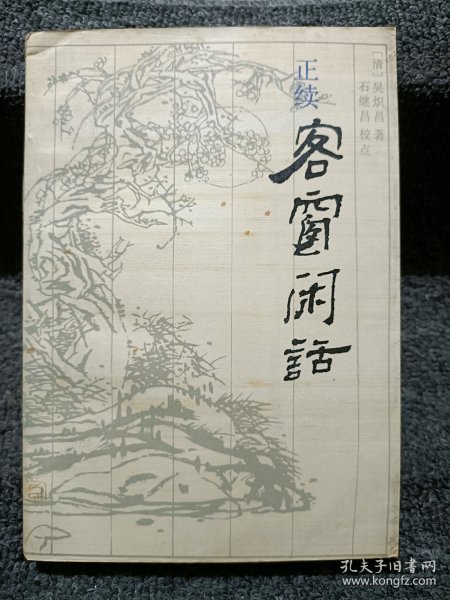 〔清〕吴炽昌 著
石继昌 校点
正续
客窗闲話
孔夫子旧书网
www.kongfz.com